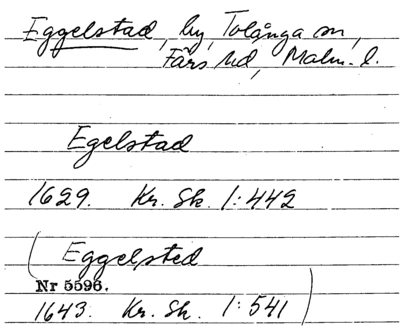 Eggelstad, by, Tolånga sn,
Färs hd, Malm. l.
Egelstad
1629. Kr. Sk. 1:442
(Eggelsted
Nr 5596.
1643. Kr. Sk. 1:541)